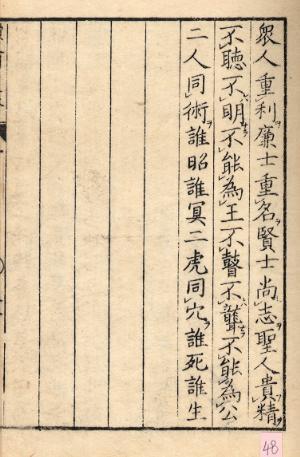 衆人重利廉士重名賢士尚志聖人貴精
不聰不明不能為王不瞽不聾不能為公
二人同術誰昭誰冥二虎同穴誰死誰生
48